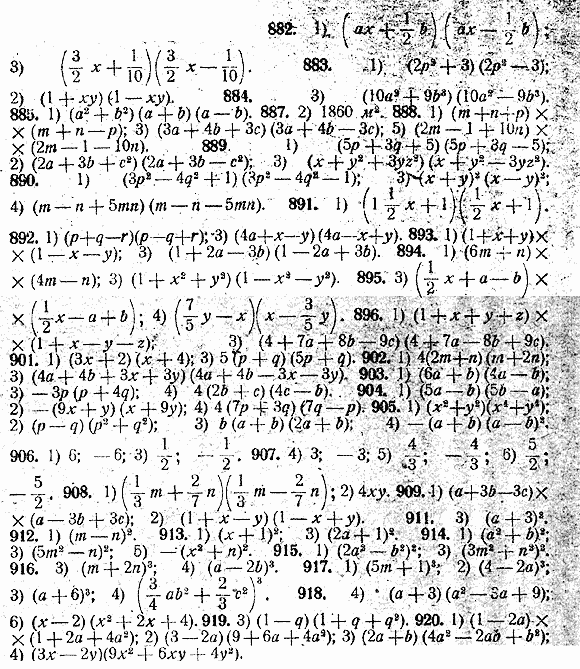 882. 1) (ax + 1/2 b) (ax − 1/2 b);
3) (3/2 x + 1/10) (3/2 x − 1/10). 883. 1) (2p² + 3) (2p² − 3);
2) (1 + xy) (1 − xy). 884. 3) (10a² + 9b³) (10a² − 9b³).
885. 1) (a² + b²) (a + b) (a − b). 887. 2) 1860 м². 888. 1) (m + n + p) ×
× (m + n − p); 3) (3a + 4b + 3c) (3a + 4b − 3c); 5) (2m − 1 + 10n) ×
× (2m − 1 − 10n). 889. 1) (5p + 3q + 5) (5p + 3q − 5);
2) (2a + 3b + c²) (2a + 3b − c²); 3) (x + y² + 3yz²) (x + y² − 3yz²).
890. 1) (3p² − 4q² + 1) (3p² − 4q² − 1); 3) (x + y)² (x − y)²;
4) (m − n + 5mn) (m − n − 5mn). 891. 1) (1 1/2 x + 1) (1/2 x + 1).
892. 1) (p + q − r) (p − q + r); 3) (4a + x − y) (4a − x + y). 893. 1) (1 + x + y) ×
× (1 − x − y); 3) (1 + 2a − 3b) (1 − 2a + 3b). 894. 1) (6m + n) ×
× (4m − n); 3) (1 + x² + y²) (1 − x² − y²). 895. 3) (1/2 x + a − b) ×
× (1/2 x − a + b); 4) (7/5 y − x) (x − 3/5 y). 896. 1) (1 + x + y + z) ×
× (1 + x − y − z); 3) (4 + 7a + 8b − 9c) (4 + 7a − 8b + 9c).
901. 1) (3x + 2) (x + 4); 3) 5 (p + q) (5p + q). 902. 1) 4(2m + n) (m + 2n);
3) (4a + 4b + 3x + 3y) (4a + 4b − 3x − 3y). 903. 1) (6a + b) (4a − b);
3) − 3p (p + 4q); 4) 4 (2b + c) (4c − b). 904. 1) (5a − b) (5b − a);
2) − (9x + y) (x + 9y); 4) 4 (7p + 3q) (7q − p). 905. 1) (x² + y²) (x⁴ + y⁴);
2) (p − q) (p² + q²); 3) b (a + b) (2a + b); 4) − (a + b) (a − b)².
906. 1) 6; − 6; 3) 1/2; − 1/2. 907. 4) 3; − 3; 5) 4/3; − 4/3; 6) 5/2;
− 5/2. 908. 1) (1/3 m + 2/7 n) (1/3 m − 2/7 n); 2) 4xy. 909. 1) (a + 3b − 3c) ×
× (a − 3b + 3c); 2) (1 + x − y) (1 − x + y). 911. 3) (a + 3)².
912. 1) (m − n)². 913. 1) (x + 1)²; 3) (2a + 1)². 914. 1) (a² + b)²;
3) (5m² − n)²; 5) − (x² + n)². 915. 1) (2a² − b²)²; 3) (3m² + n²)².
916. 3) (m + 2n)³; 4) (a − 2b)³. 917. 1) (5m + 1)³; 2) (4 − 2a)³;
3) (a + 6)³; 4) (3/4 ab² + 2/3 c²)³. 918. 4) (a + 3) (a² − 3a + 9);
6) (x − 2) (x² + 2x + 4). 919. 3) (1 − q) (1 + q + q²). 920. 1) (1 − 2a) ×
× (1 + 2a + 4a²); 2) (3 − 2a) (9 + 6a + 4a²); 3) (2a + b) (4a² − 2ab + b²);
4) (3x − 2y) (9x² + 6xy + 4y²).